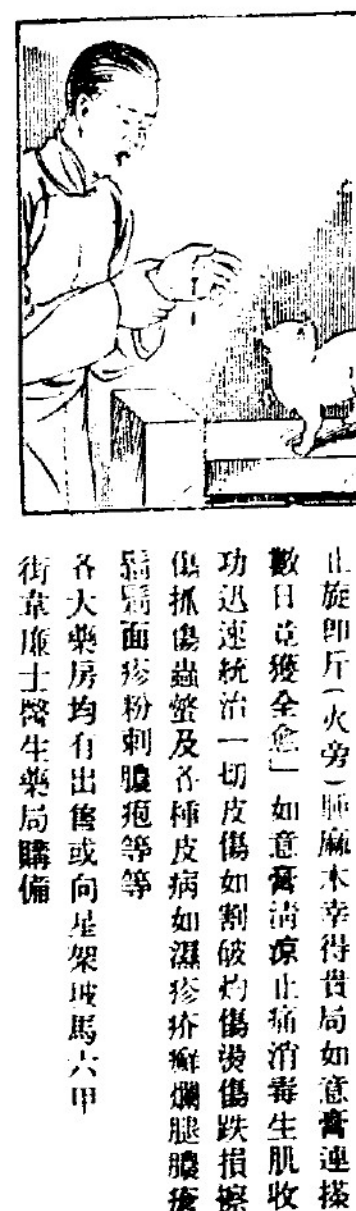 止旋即斤(火旁)腫麻木幸得貴局如意膏連搽
數日竟獲全愈」如意膏清凉止痛消毒生肌收
功迅速統治一切皮傷如割破灼傷燙傷跌損擦
傷抓傷蟲螫及各種皮病如濕疹疥癬爛腿膿瘡
面疹粉刺膿疱等等
各大藥房均有出售或向星架坡馬六甲
街韋廉士醫生藥局購備